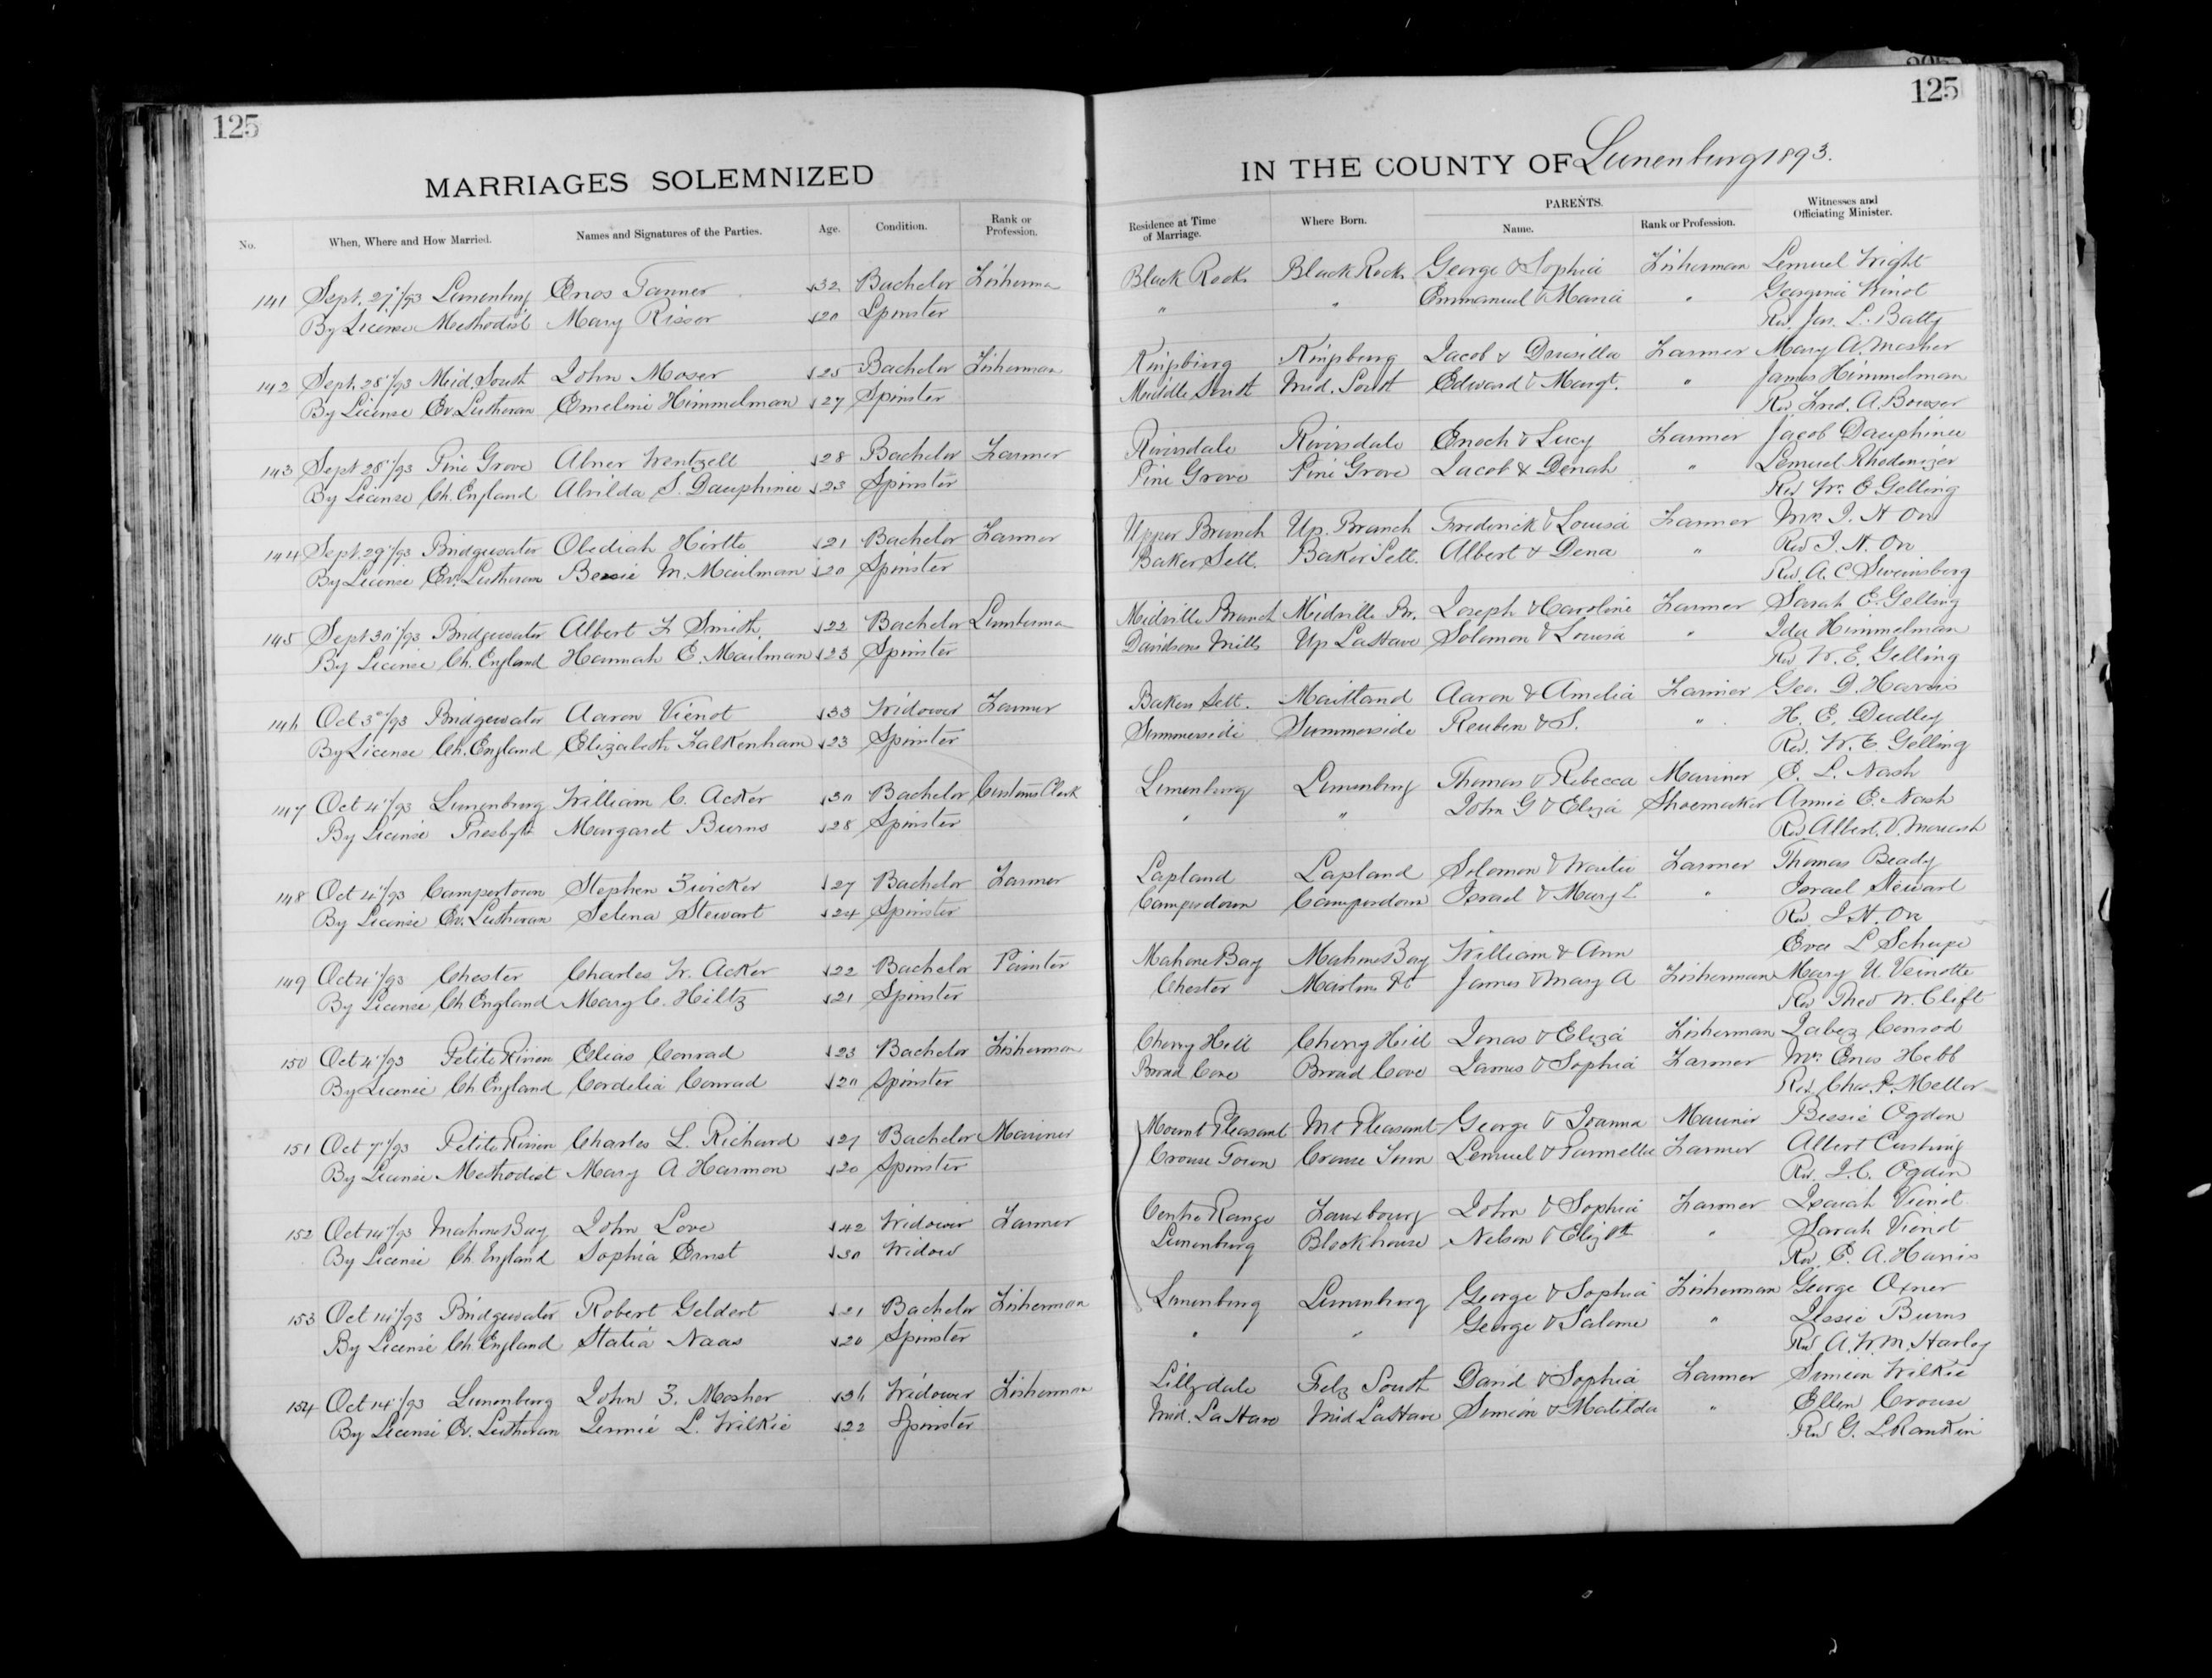 125
125
MARRIAGES SOLEMNIZED IN THE COUNTY OF Lunenburg 1893.
No. When, Where and How Married. Names and Signatures of the Parties. Age. Condition. Rank or Profession. Residence at Time of Marriage. Where Born. PARENTS. Name. Rank or Profession. Witnesses and Officiating Minister.
141 Sept. 27"/93 Lunenburg Enos Tanner 32 Bachelor Fisherman Black Rock Black Rock George & Sophia Fisherman Lemuel Knight
By License Methodist Mary Risser 20 Spinster " " Emmanuel & Maria " Georgina
Rev. Jas. L. Batty
142 Sept. 28"/93 Mid. South John Moser 25 Bachelor Fisherman Kingsburg Kingsburg Jacob & Drusilla Farmer Mary A. Mosher
By License Ev. Lutheran Emeline Himmelman 27 Spinster Middle South Mid. South Edward & Margt. " James Himmelman
Rev. Fred. A. Bowser
143 Sept 28"/93 Pine Grove Abner Wentzell 28 Bachelor Farmer Riversdale Riversdale Enoch & Lucy Farmer Jacob Dauphinee
By License Ch. England Alvilda S. Dauphinee 23 Spinster Pine Grove Pine Grove Jacob & Denah " Lemuel Rhodenizer
Rev W. E Gelling
144 Sept. 29"/93 Bridgewater Obediah Hirtle 21 Bachelor Farmer Upper Branch Up. Branch Frederick & Louisa Farmer Mrs J. H Orr
By License Ev. Lutheran Bessie M. Mailman 20 Spinster Baker Sett. Baker Sett. Albert & Dena " Rev J. H. Orr
Rev. A. C. Sweinsberg
145 Sept 30"/93 Bridgewater Albert F Smith. 22 Bachelor Lumberman Midville Branch Midville Br. Joseph & Caroline Farmer Sarah E. Gelling
By License Ch. England Hannah E. Mailman 23 Spinster Davidsons Mills Up LaHave Solomon & Louisa " Ida Himmelman
Rev W. E. Gelling
146 Oct 3"/93 Bridgewater Aaron Vienot 33 Widower Farmer Bakers Sett. Maitland Aaron & Amelia Farmer Geo. D. Harris
By License Ch. England Elizabeth Falkenham 23 Spinster Summerside Summerside Reuben & S. " H. E. Dudley
Rev. W. E. Gelling
147 Oct 4"/93 Lunenburg William C. Acker 30 Bachelor Customs Clerk Lunenburg Lunenburg Thomas & Rebecca Mariner E. L. Nash
By License Presbytn Margaret Burns 28 Spinster " " John G & Eliza Shoemaker Annie E. Nash
Rev. Albert.
148 Oct 4"/93 Campertown Stephen Zwicker 27 Bachelor Farmer Lapland Lapland Solomon & Farmer Thomas Beady
By License Ev. Lutheran Selena Stewart 24 Spinster Camperdown Camperdown Israel & Mary L " Israel Stewart
Rev J. H. Orr
149 Oct 4"/93 Chester Charles W. Acker 22 Bachelor Painter Mahone Bay Mahone Bay William & Ann Eva L Schupe
By License Ch England Mary C. Hiltz 21 Spinster Chester Martins Pt James & Mary A Fisherman Mary U. Veinotte
Rev Theo W. Clift
150 Oct 4"/93 Petite Riviere Elias Conrad 23 Bachelor Fisherman Cherry Hill Cherry Hill Jonas & Eliza Fisherman Jabez Conrod
By License Ch England Cordelia Conrad 20 Spinster Broad Cove Broad Cove James & Sophia Farmer Mrs Enos Hebb
Rev Chas. P. Mellor
151 Oct 7"/93 Petite Riviere Charles L. Richard 27 Bachelor Mariner Mount Pleasant Mt Pleasant George & Joanna Mariner Bessie Ogden
By License Methodist Mary A. Harmon 20 Spinster Crouse Town Crouse Town Lemuel & Parmelia Farmer Albert Cushing
Rev. J. C. Ogden
152 Oct 14"/93 Mahone Bay John Love 42 Widower Farmer Centre Range Fauxbourg John & Sophia Farmer Isaiah Vienot
By License Ch. England Sophia Ernst 30 Widow Lunenburg Blockhouse Nelson & Elizth " Sarah Vienot
Rev E. A. Harris
153 Oct 14"/93 Bridgewater Robert Geldert 21 Bachelor Fisherman Lunenburg Lunenburg George & Sophia Fisherman George Oxner
By License Ch. England Statia Naas 20 Spinster " " George & Salome " Jessie Burns
Rev A. W. M. Harley
154 Oct 14"/93 Lunenburg John Z. Mosher 36 Widower Fisherman Lillydale Felz South David & Sophia Farmer Simeon Wilkie
By License Ev. Lutheran Jennie L. Wilkie 22 Spinster Mid. LaHave Mid LaHave Simeon & Matilda " Ellen Crouse
Rev G. L Rankin